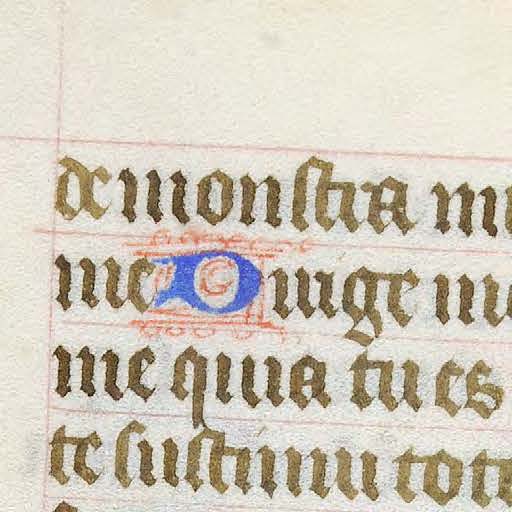 demonstra mi
me Dirige me
me quia tu es
te sustinui tota